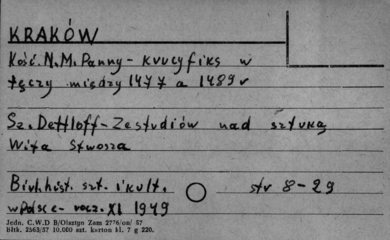 KRAKÓW
Kość. N.M. Panny - krucyfiks w
tęczy między 1477 a 1489 r
Sz. Dettloff - Ze studiów nad sztuką
Wita Stwosza
Biul. hist. szt. i kult. str 8-29
w Polsce - rocz. XI 1949
Jedn. C.W.D B/Olsztyn Zam 2776/on/ 67
Bltk. 2563/57 10.000 szt. karton kl. 7 g 220.